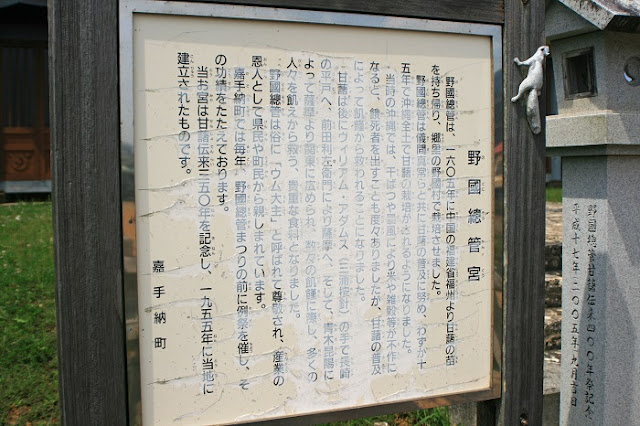 野國總管宮
野國總管は、一六〇五年に中国の福建省福州より甘藷の苗
を持ち帰り、郷里の野國村で栽培させました。
野國總管は儀間真常らと共に甘藷の普及に努め、わずか十
五年で沖縄全土で甘藷の栽培がされるようになりました。
当時の沖縄では、干ばつや台風により米や雑穀等が不作に
なると、餓死者を出すことも度々ありましたが、甘藷の普及
によって飢饉から救われることになりました。
甘藷は後にウィリアム・アダムス(三浦按針)の手で長崎
の平戸へ、前田利右衛門により薩摩へ、そして、青木昆陽に
よって薩摩より関東に広められ、数々の飢饉に際し、多くの
人々を飢えから救う、貴重な食料となりました。
野國總管は俗に「ウム大主」と呼ばれて尊敬され、産業の
恩人として県民や町民から親しまれています。
嘉手納町では毎年、野國總管まつりの前に例祭を催し、そ
の功績をたたえております。
当お宮は甘藷伝来三五〇年を記念し、一九五五年に当地に
建立されたものです。
嘉手納町
野國總管甘藷伝来四〇〇年祭記念
平成十七年二〇〇五年九月吉日